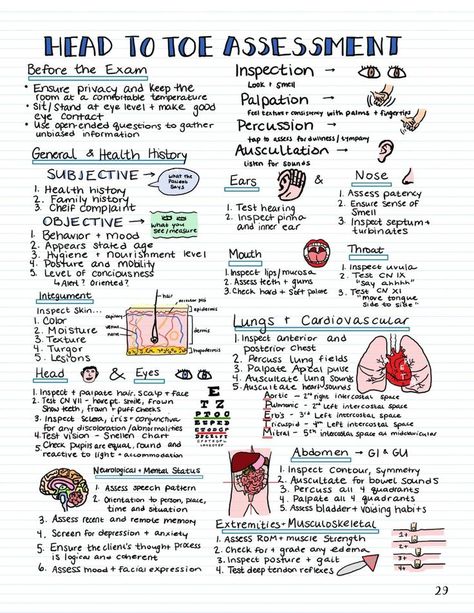 HEAD TO TOE ASSESSMENT
Before the Exam
• Ensure privacy and keep the
room at a comfortable temperature
• Sit/Stand at eye level + make good
eye contact
• Use open-ended questions to gather
unbiased information
Inspection →
Look + smell
Palpation →
Feel texture + consistency with palms + fingertips
Percussion →
tap to assess for dullness/tympany
Auscultation →
listen for sounds
General & Health History
SUBJECTIVE →
what the
Patient
Says
1. Health history
2. Family history
3. Cheif complaint
OBJECTIVE →
what you
see/measure
1. Behavior + mood
2. Appears stated age
3. Hygiene + nourishment level
4. Posture and mobility
5. Level of conciousness
↳ Alert? Oriented?
Ears
&
Nose
1. Test hearing
2. Inspect pinna
and inner ear
1. Assess patency
2. Ensure sense of
Smell
3. Inspect septum +
turbinates
Mouth
1. Inspect lips/mucosa
2. Assess teeth + gums
3. Check hard + Soft palate
Throat
1. Inspect uvula
2. Test CN IX
"Say ahhhh"
3. Test CN XI
"move tongue
side to side"
Integument
Inspect Skin...
1. Color
2. Moisture
3. Texture
4. Turgor
5. Lesions
hair
epidermis
capillary
vein
nerve
dermis
hypodermis
Lungs + Cardiovascular
1. Inspect anterior and
posterior Chest
2. Percuss lung fields
3. Palpate Apical pulse
4. Auscultate lung sounds
5. Auscultate heart sounds
Aortic - 2nd right intercostal space
Pulmonic - 2nd left intercostal space
Erb's - 3rd Left intercostal Space
Tricuspid - 4th Left intercostal space
Mitral - 5th intercostal space at midclavicular
Head
&
Eyes
1. Inspect + palpate hair, Scalp + face
2. Test CN VII - have pt. smile, frown
Show teeth, frown + puff cheeks
3. Inspect Sclera, iris + conjunctiva
for any discoloration/abnormalities
4. Test vision - Snellen chart
5. Check pupils are equal, round and
reactive to light + accommodation
E
T Z
Neurological + Mental Status
1. Assess speech pattern
2. Orientation to person, place,
time and situation
3. Assess recent and remote memory
4. Screen for depression + anxiety
5. Ensure the client's thought process
is logical and coherent
6. Assess mood + facial expression
Abdomen → GI & GU
1. Inspect Contour, Symmetry
2. Auscultate for bowel sounds
3. Percuss all 4 quadrants
4. Palpate all 4 quadrants
5. Assess bladder + voiding habits
Extremities + Musculoskeletal
1. Assess ROM + muscle Strength
2. Check for + grade any edema
3. Inspect posture + gait
4. Test deep tendon reflexes
1+
2+
3+
4+
29